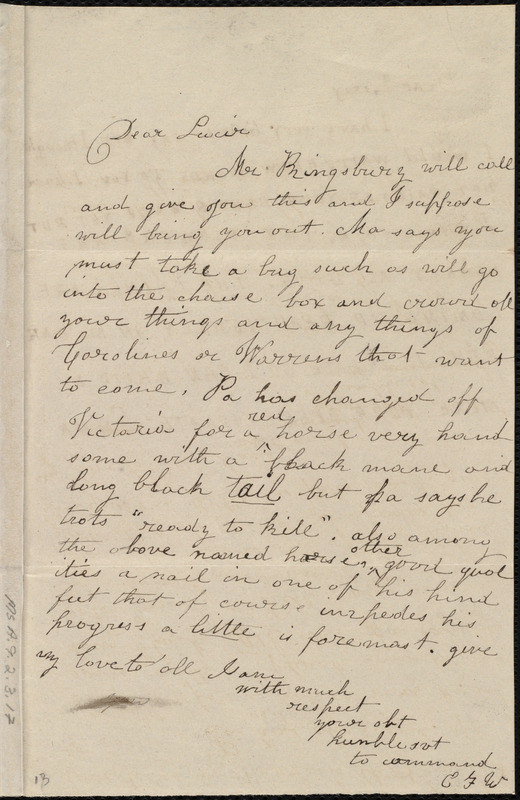 Dear Lucir
Mr Kingsbury will call
and give you this and I suppose
will bring you out. Ma says you
must take a bag such as will go
into the chaise box and crowd all
your things and any things of
Carolines or Warrens that want
to come. Pa has changed off
Victoria for a red horse very hand
some with a black mane and
long black tail but pa says he
trots "ready to kill". also among
the above named horse,s other good qual
ities a nail in one of his hind
feet that of course impedes his
progress a little is foremast. give
my love to all I am
with much
respect
your obt
humble svt
to command
E F W
Ms A.9.2.3.17
13